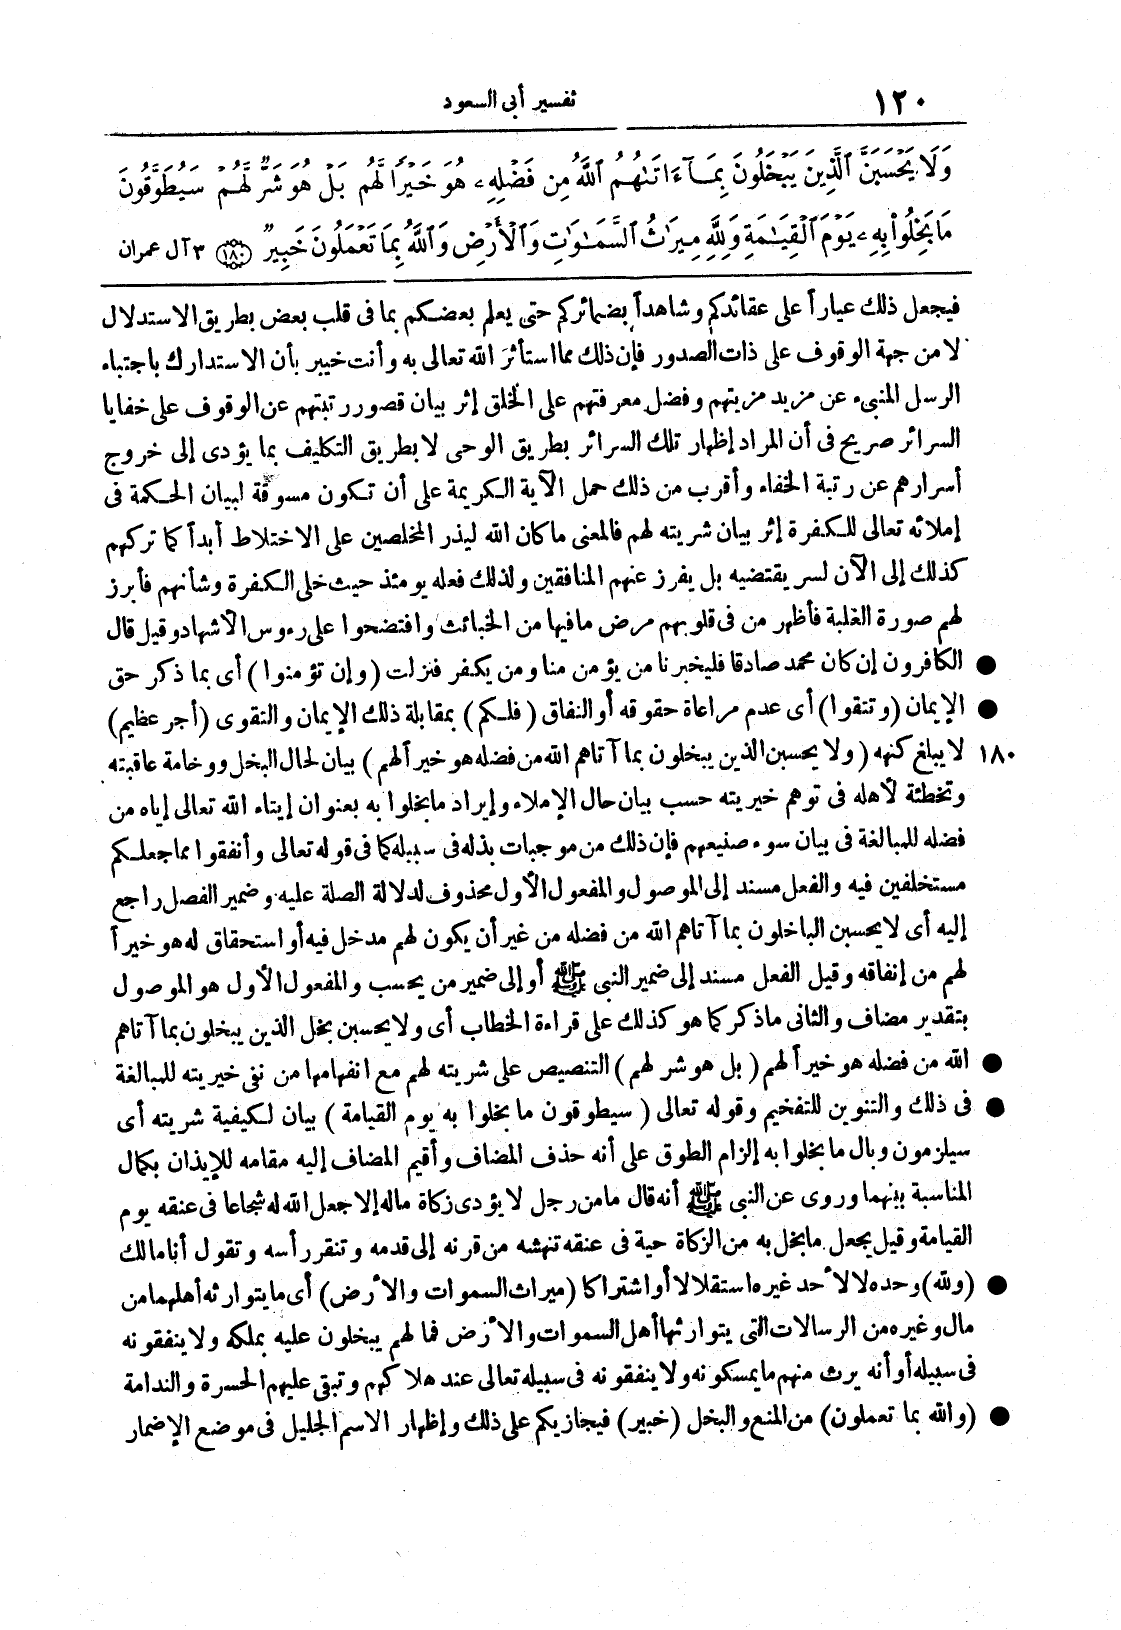 ١٢٠
تفسير أبى السعود
وَلَا يَحْسَبَنَّ ٱلَّذِينَ يَبْخَلُونَ بِمَآ ءَاتَىٰهُمُ ٱللَّهُ مِن فَضْلِهِۦ هُوَ خَيْرًا لَّهُم بَلْ هُوَ شَرٌّ لَّهُمْ سَيُطَوَّقُونَ
مَا بَخِلُوا۟ بِهِۦ يَوْمَ ٱلْقِيَٰمَةِ وَلِلَّهِ مِيرَٰثُ ٱلسَّمَٰوَٰتِ وَٱلْأَرْضِ وَٱللَّهُ بِمَا تَعْمَلُونَ خَبِيرٌ ١٨٠ ٣ آل عمران
فيجعل ذلك عياراً على عقائدكم وشاهداً بضمائركم حتى يعلم بعضكم بما فى قلب بعض بطريق الاستدلال
لا من جهة الوقوف على ذات الصدور فإن ذلك مما استأثر الله تعالى به وأنت خبير بأن الاستدراك باجتباء
الرسل المنبىء عن مزيد مزيتهم وفضل معرفتهم على الخلق إثر بيان قصور رتبتهم عن الوقوف على خفايا
السرائر صريح فى أن المراد إظهار تلك السرائر بطريق الوحى لا بطريق التكليف بما يؤدى إلى خروج
أسرارهم عن رتبة الخفاء وأقرب من ذلك حمل الآية الكريمة على أن تكون مسوقة لبيان الحكمة فى
إملائه تعالى للكفرة إثر بيان شريته لهم فالمعنى ما كان الله ليذر المخلصين على الاختلاط أبداً كما تركهم
كذلك إلى الآن لسر يقتضيه بل يفرز عنهم المنافقين ولذلك فعله يومئذ حيث خلى الكفرة وشأنهم فأبرز
لهم صورة الغلبة فأظهر من فى قلوبهم مرض ما فيها من الخبائث وافتضحوا على رءوس الأشهاد وقيل قال
● الكافرون إن كان محمد صادقا فليخبرنا من يؤمن منا ومن يكفر فنزلت (وإن تؤمنوا) أى بما ذكر حق
● الإيمان (وتتقوا) أى عدم مراعاة حقوقه أو النفاق (فلكم) بمقابلة ذلك الإيمان والتقوى (أجر عظيم)
١٨٠ لا يبلغ كنهه (ولا يحسبن الذين يبخلون بما آتاهم الله من فضله هو خيراً لهم) بيان لحال البخل ووخامة عاقبته
وتخطئة لأهله فى توهم خيريته حسب بيان حال الإملاء وإيراد ما بخلوا به بعنوان إيتاء الله تعالى إياه من
فضله للمبالغة فى بيان سوء صنيعهم فإن ذلك من موجبات بذله فى سبيله كما فى قوله تعالى وأنفقوا مما جعلكم
مستخلفين فيه والفعل مسند إلى الموصول والمفعول الأول محذوف لدلالة الصلة عليه وضمير الفصل راجع
إليه أى لا يحسبن الباخلون بما آتاهم الله من فضله من غير أن يكون لهم مدخل فيه أو استحقاق له هو خيراً
لهم من إنفاقه وقيل الفعل مسند إلى ضمير النبى ﷺ أو إلى ضمير من يحسب والمفعول الأول هو الموصول
بتقدير مضاف والثانى ما ذكر كما هو كذلك على قراءة الخطاب أى ولا يحسبن بخل الذين يبخلون بما آتاهم
● الله من فضله هو خيراً لهم (بل هو شر لهم) التنصيص على شريته لهم مع انفهامها من نفى خيريته للمبالغة
● فى ذلك والتنوين للتفخيم وقوله تعالى (سيطوقون ما بخلوا به يوم القيامة) بيان لكيفية شريته أى
سيلزمون وبال ما بخلوا به إلزام الطوق على أنه حذف المضاف وأقيم المضاف إليه مقامه للإيذان بكمال
المناسبة بينهما وروى عن النبى ﷺ أنه قال ما من رجل لا يؤدى زكاة ماله إلا جعل الله له شجاعا فى عنقه يوم
القيامة وقيل يجعل ما بخل به من الزكاة حية فى عنقه تنهشه من قرنه إلى قدمه وتنقر رأسه وتقول أنا مالك
● (ولله) وحده لا لأحد غيره استقلالا أو اشتراكا (ميراث السموات والأرض) أى ما يتوارثه أهلهما من
مال وغيره من الرسالات التى يتوارثها أهل السموات والأرض فما لهم يبخلون عليه بملكه ولا ينفقونه
فى سبيله أو أنه يرث منهم ما يمسكونه ولا ينفقونه فى سبيله تعالى عند هلاكهم وتبقى عليهم الحسرة والندامة
● (والله بما تعملون) من المنع والبخل (خبير) فيجازيكم على ذلك وإظهار الاسم الجليل فى موضع الإضمار